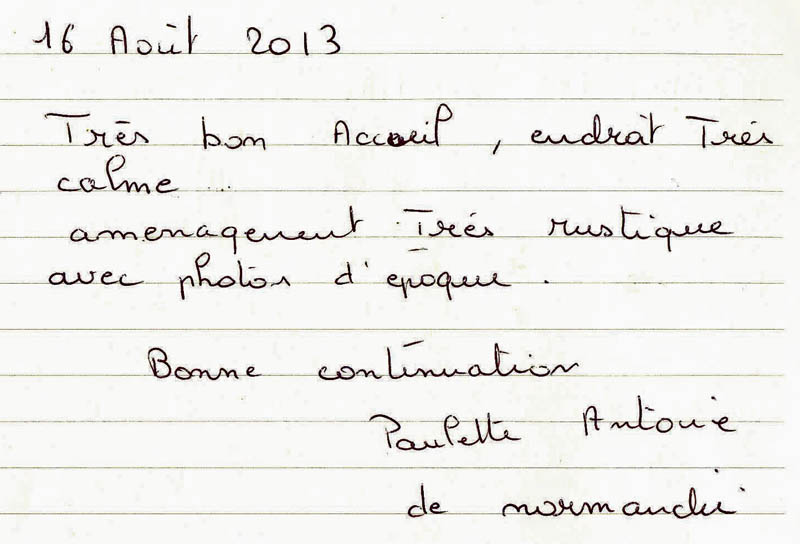 16 Août 2013
Très bon Accueil, endroit Trés
calme
amenagement Trés rustique
avec photos d'epoque.
Bonne continuation
Paulette Antoine
de normandie